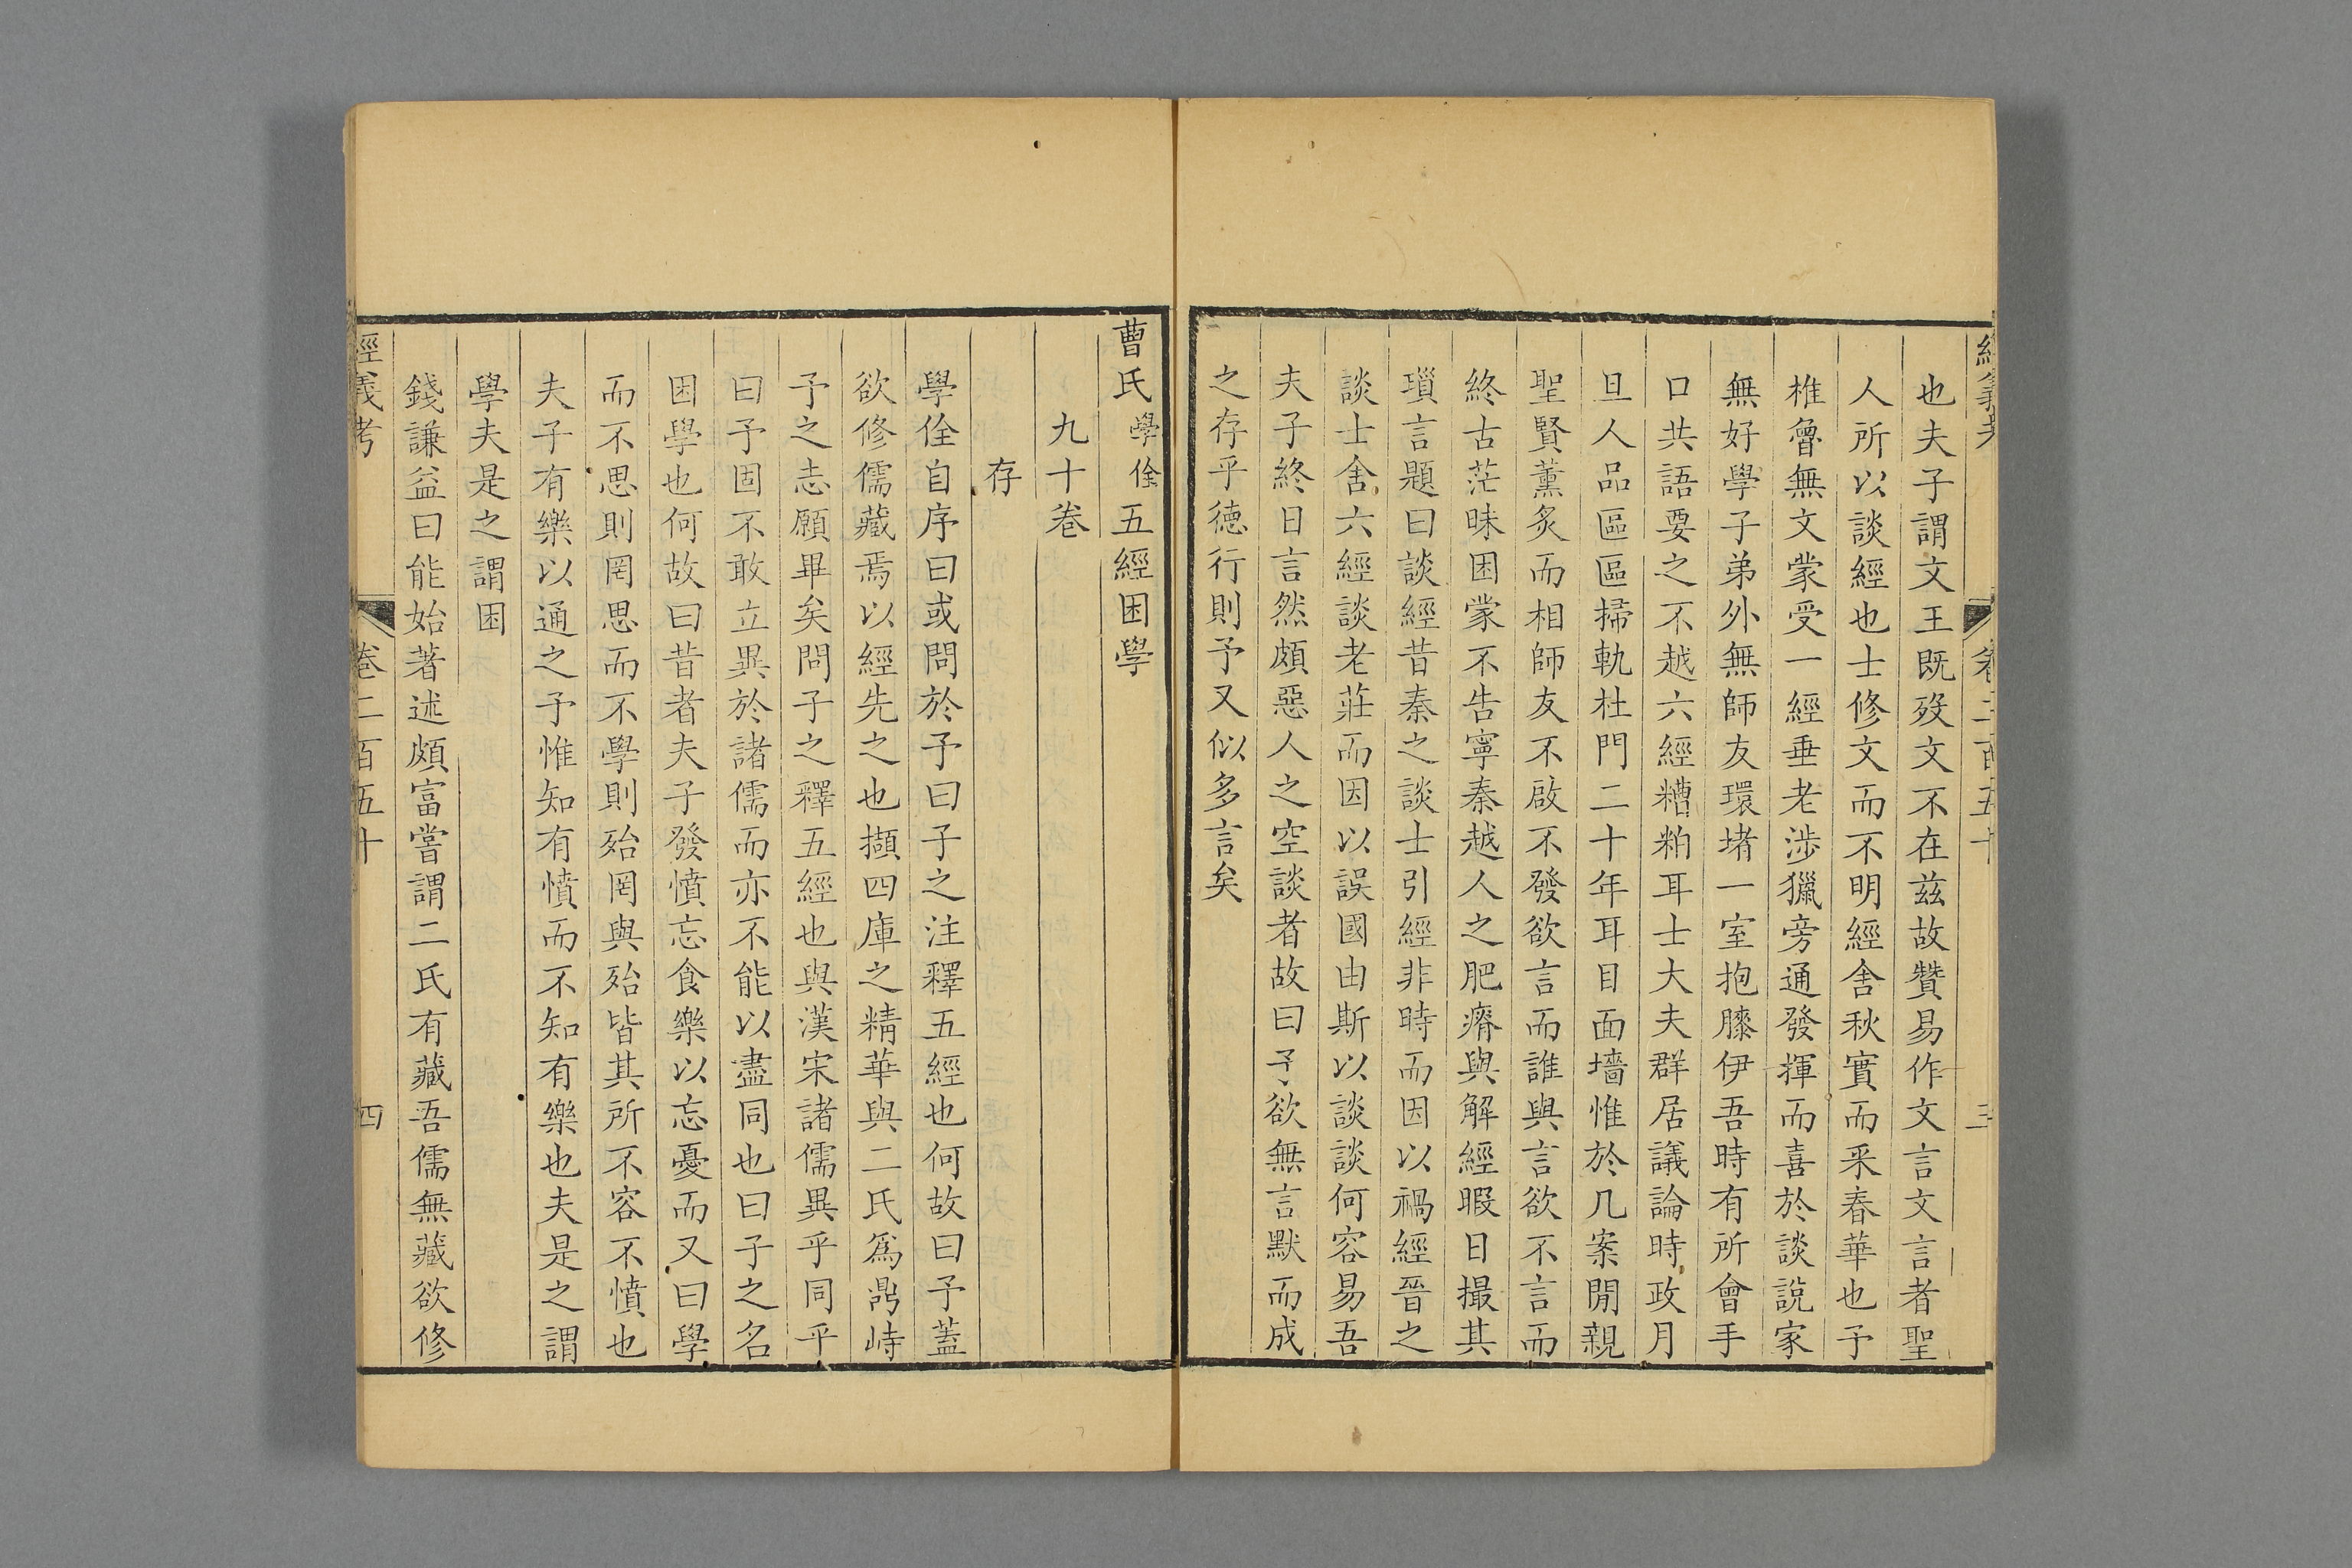 經義考 卷二百五十 三
也夫子謂文王既歿文不在茲故贊易作文言文言者聖
人所以談經也士修文而不明經舍秋實而采春華也予
椎魯無文蒙受一經垂老涉獵旁通發揮而喜於談說家
無好學子弟外無師友環堵一室抱膝伊吾時有所會手
口共語要之不越六經糟粕耳士大夫群居議論時政月
旦人品區區掃軌杜門二十年耳目面墻惟於几案閒親
聖賢薰炙而相師友不啟不發欲言而誰與言欲不言而
終古茫昧困蒙不告寧秦越人之肥瘠與解經暇日撮其
瑣言題曰談經昔秦之談士引經非時而因以禍經晉之
談士舍六經談老莊而因以誤國由斯以談談何容易吾
夫子終日言然頗惡人之空談者故曰予欲無言默而成
之存乎德行則予又似多言矣
曹氏學佺五經困學
九十卷
存
學佺自序曰或問於予曰子之注釋五經也何故曰予蓋
欲修儒藏焉以經先之也擷四庫之精華與二氏爲鼎峙
予之志願畢矣問子之釋五經也與漢宋諸儒異乎同乎
曰予固不敢立異於諸儒而亦不能以盡同也曰子之名
困學也何故曰昔者夫子發憤忘食樂以忘憂而又曰學
而不思則罔思而不學則殆罔與殆皆其所不容不憤也
夫子有樂以通之予惟知有憤而不知有樂也夫是之謂
學夫是之謂困
錢謙益曰能始著述頗富嘗謂二氏有藏吾儒無藏欲修
經義考 卷二百五十 四